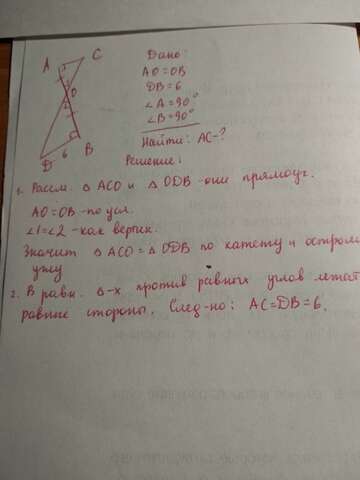 A
C
O
D
6
B
Дано:
AO=OB
DB=6
∠A=90°
∠B=90°
Найти: AC-?
Решение:
1. Рассм. △ ACO и △ ODB - они прямоуг.
AO=OB - по усл.
∠1=∠2 - как вертик.
Значит △ ACO = △ ODB по катету и острому
углу
2. В равн. △-х против равных углов лежат
равные стороны. След-но: AC=DB=6.